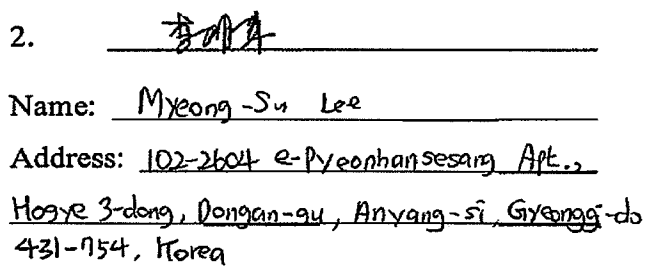 2. 李明洙
Name: Myeong-Su Lee
Address: 102-2604 e-Pyeonhansesang Apt.,
Hogye 3-dong, Dongan-gu, Anyang-si, Gyeonggi-do
431-754, Korea